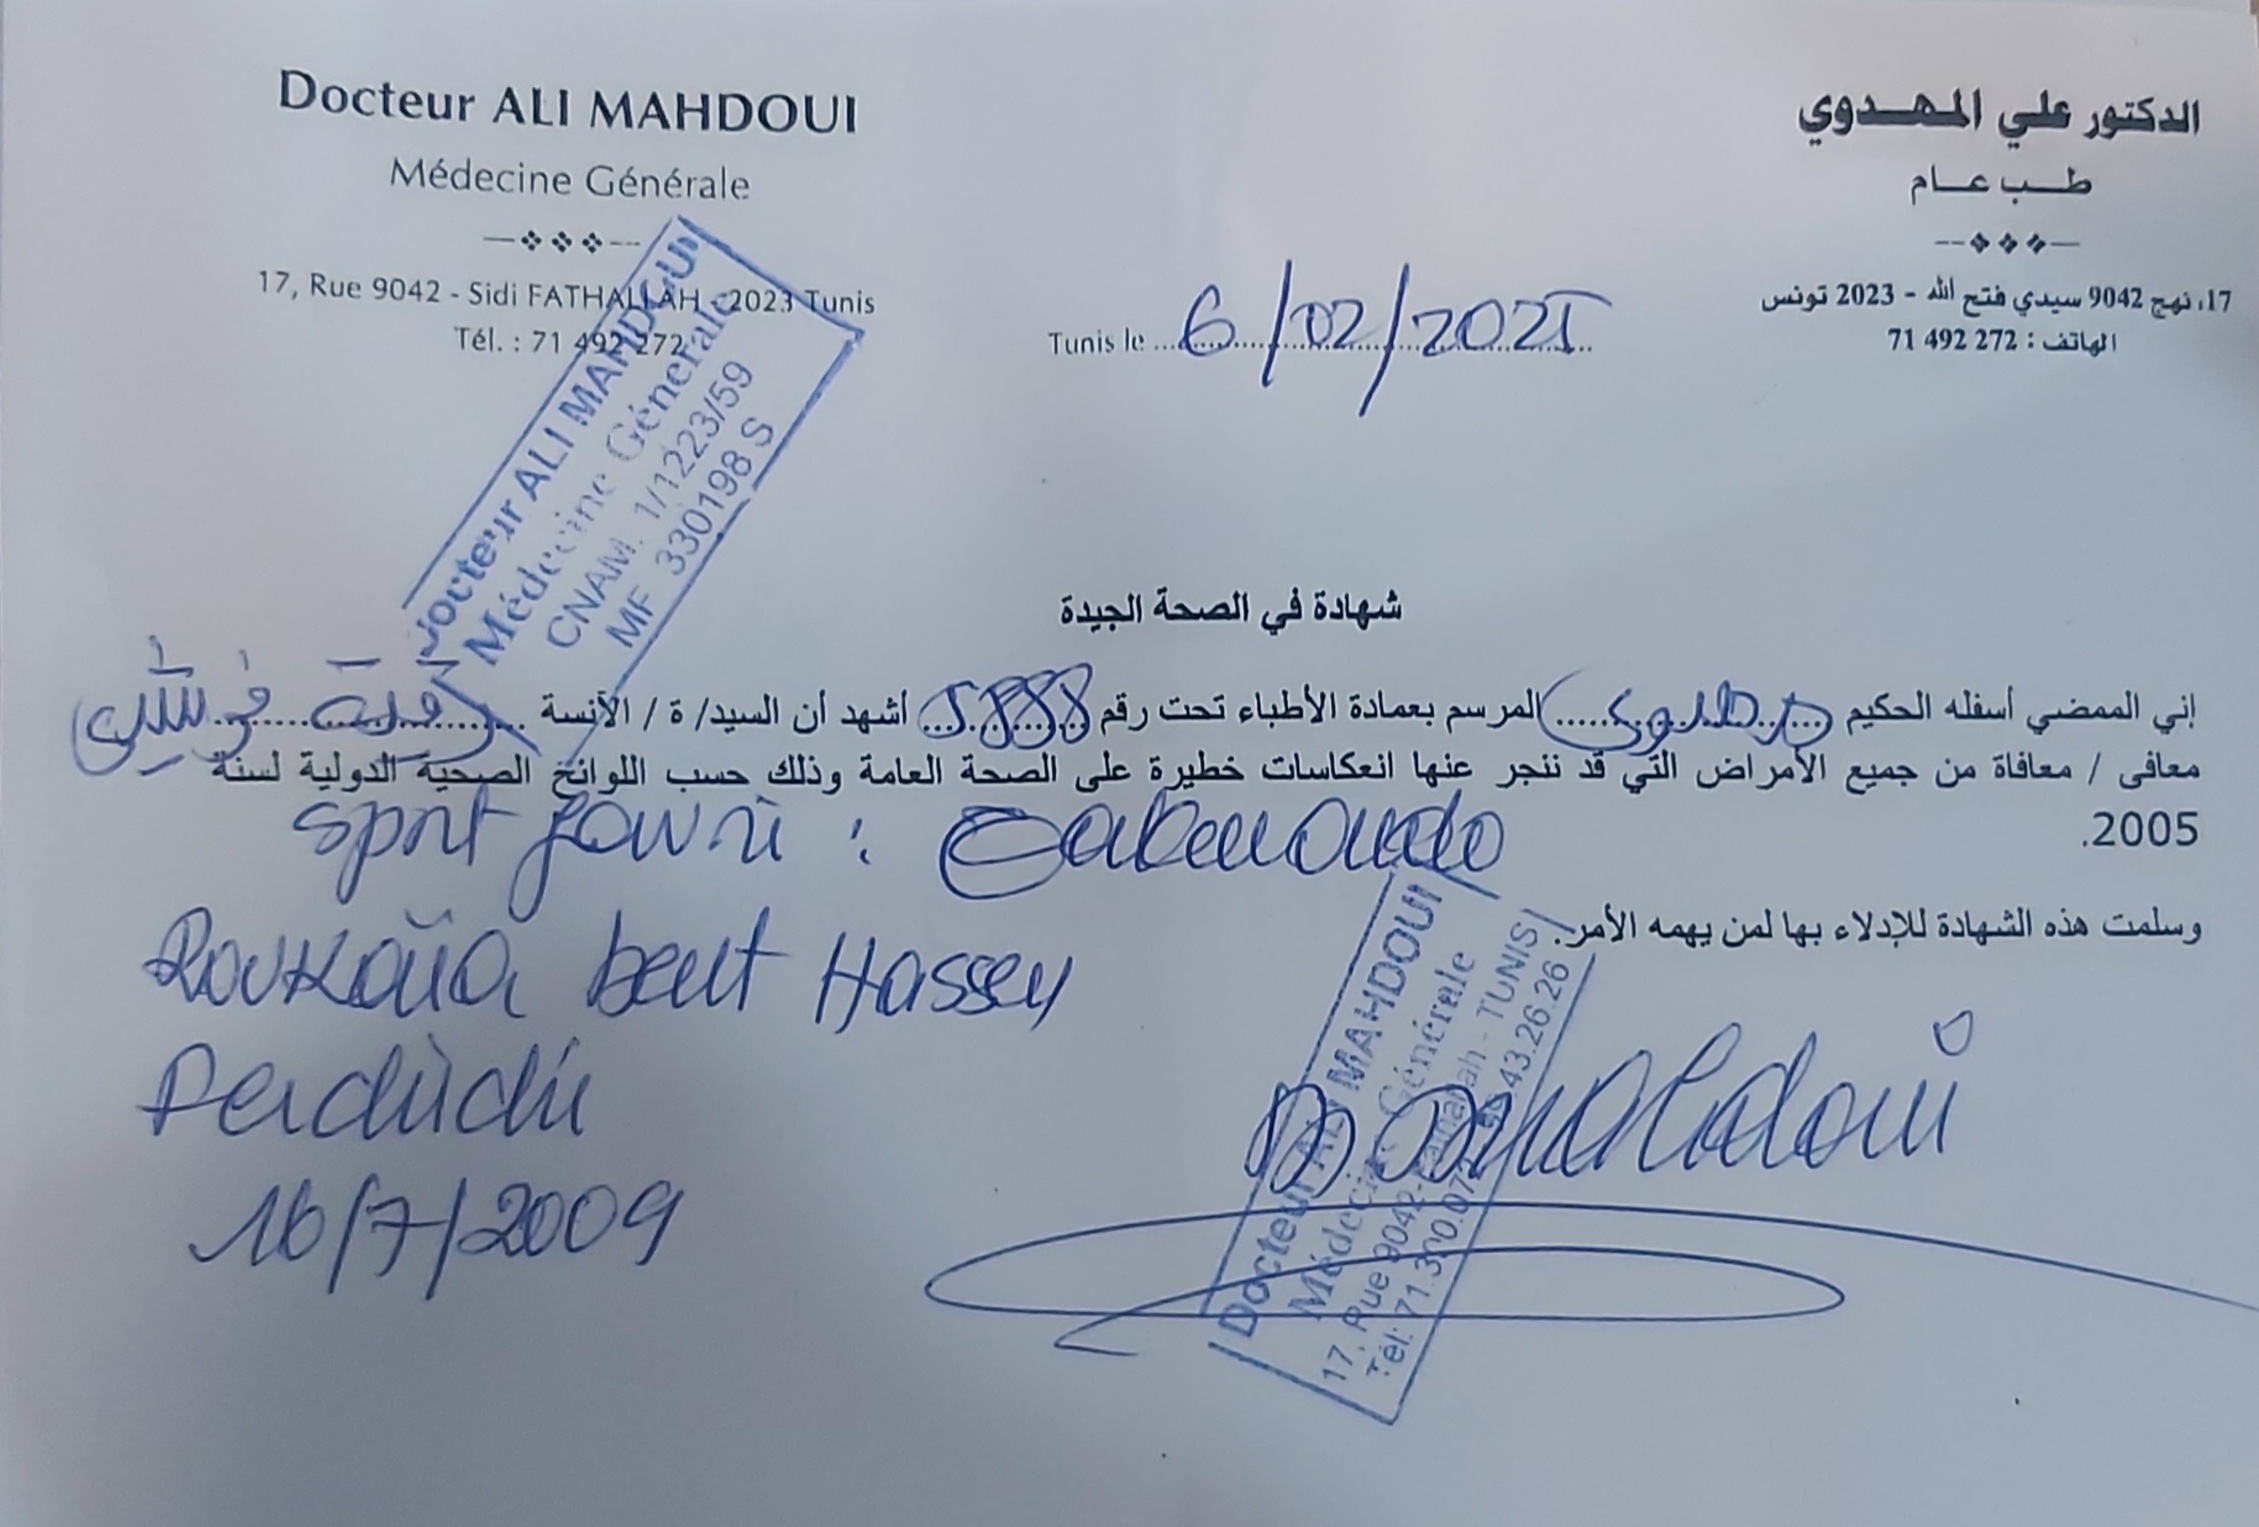 Docteur ALI MAHDOUI
Médecine Générale
17, Rue 9042 - Sidi FATHALLAH - 2023 Tunis
Tél. : 71 492 272
الدكتور علي المهدوي
طب عام
17، نهج 9042 سيدي فتح الله - 2023 تونس
الهاتف : 272 492 71
Tunis le 6/02/2025
Docteur ALI MAHDOUI
Médecine Générale
CNAM. 1/1223/59
MF 330198 S
شهادة في الصحة الجيدة
إني الممضي أسفله الحكيم المرسم بعمادة الأطباء تحت رقم أشهد أن السيد/ ة / الآنسة
معافى / معافاة من جميع الأمراض التي قد ننجر عنها انعكاسات خطيرة على الصحة العامة وذلك حسب اللوانح الصحية الدولية لسنة
2005.
sport
وسلمت هذه الشهادة للإدلاء بها لمن يهمه الأمر.
Roukaïa bent Hassen
16/7/2009
Docteur ALI MAHDOUI
Médecine Générale
17, Rue 9042- Fathallah - TUNIS
Tél: 71.390.07 43.26.26